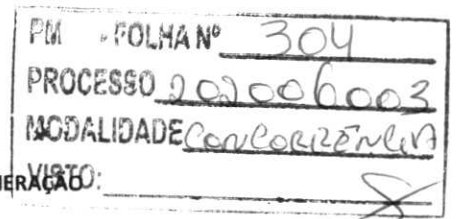 PM - FOLHA Nº 304
PROCESSO 202006003
MODALIDADE CONCORRÊNCIA
VISTO: